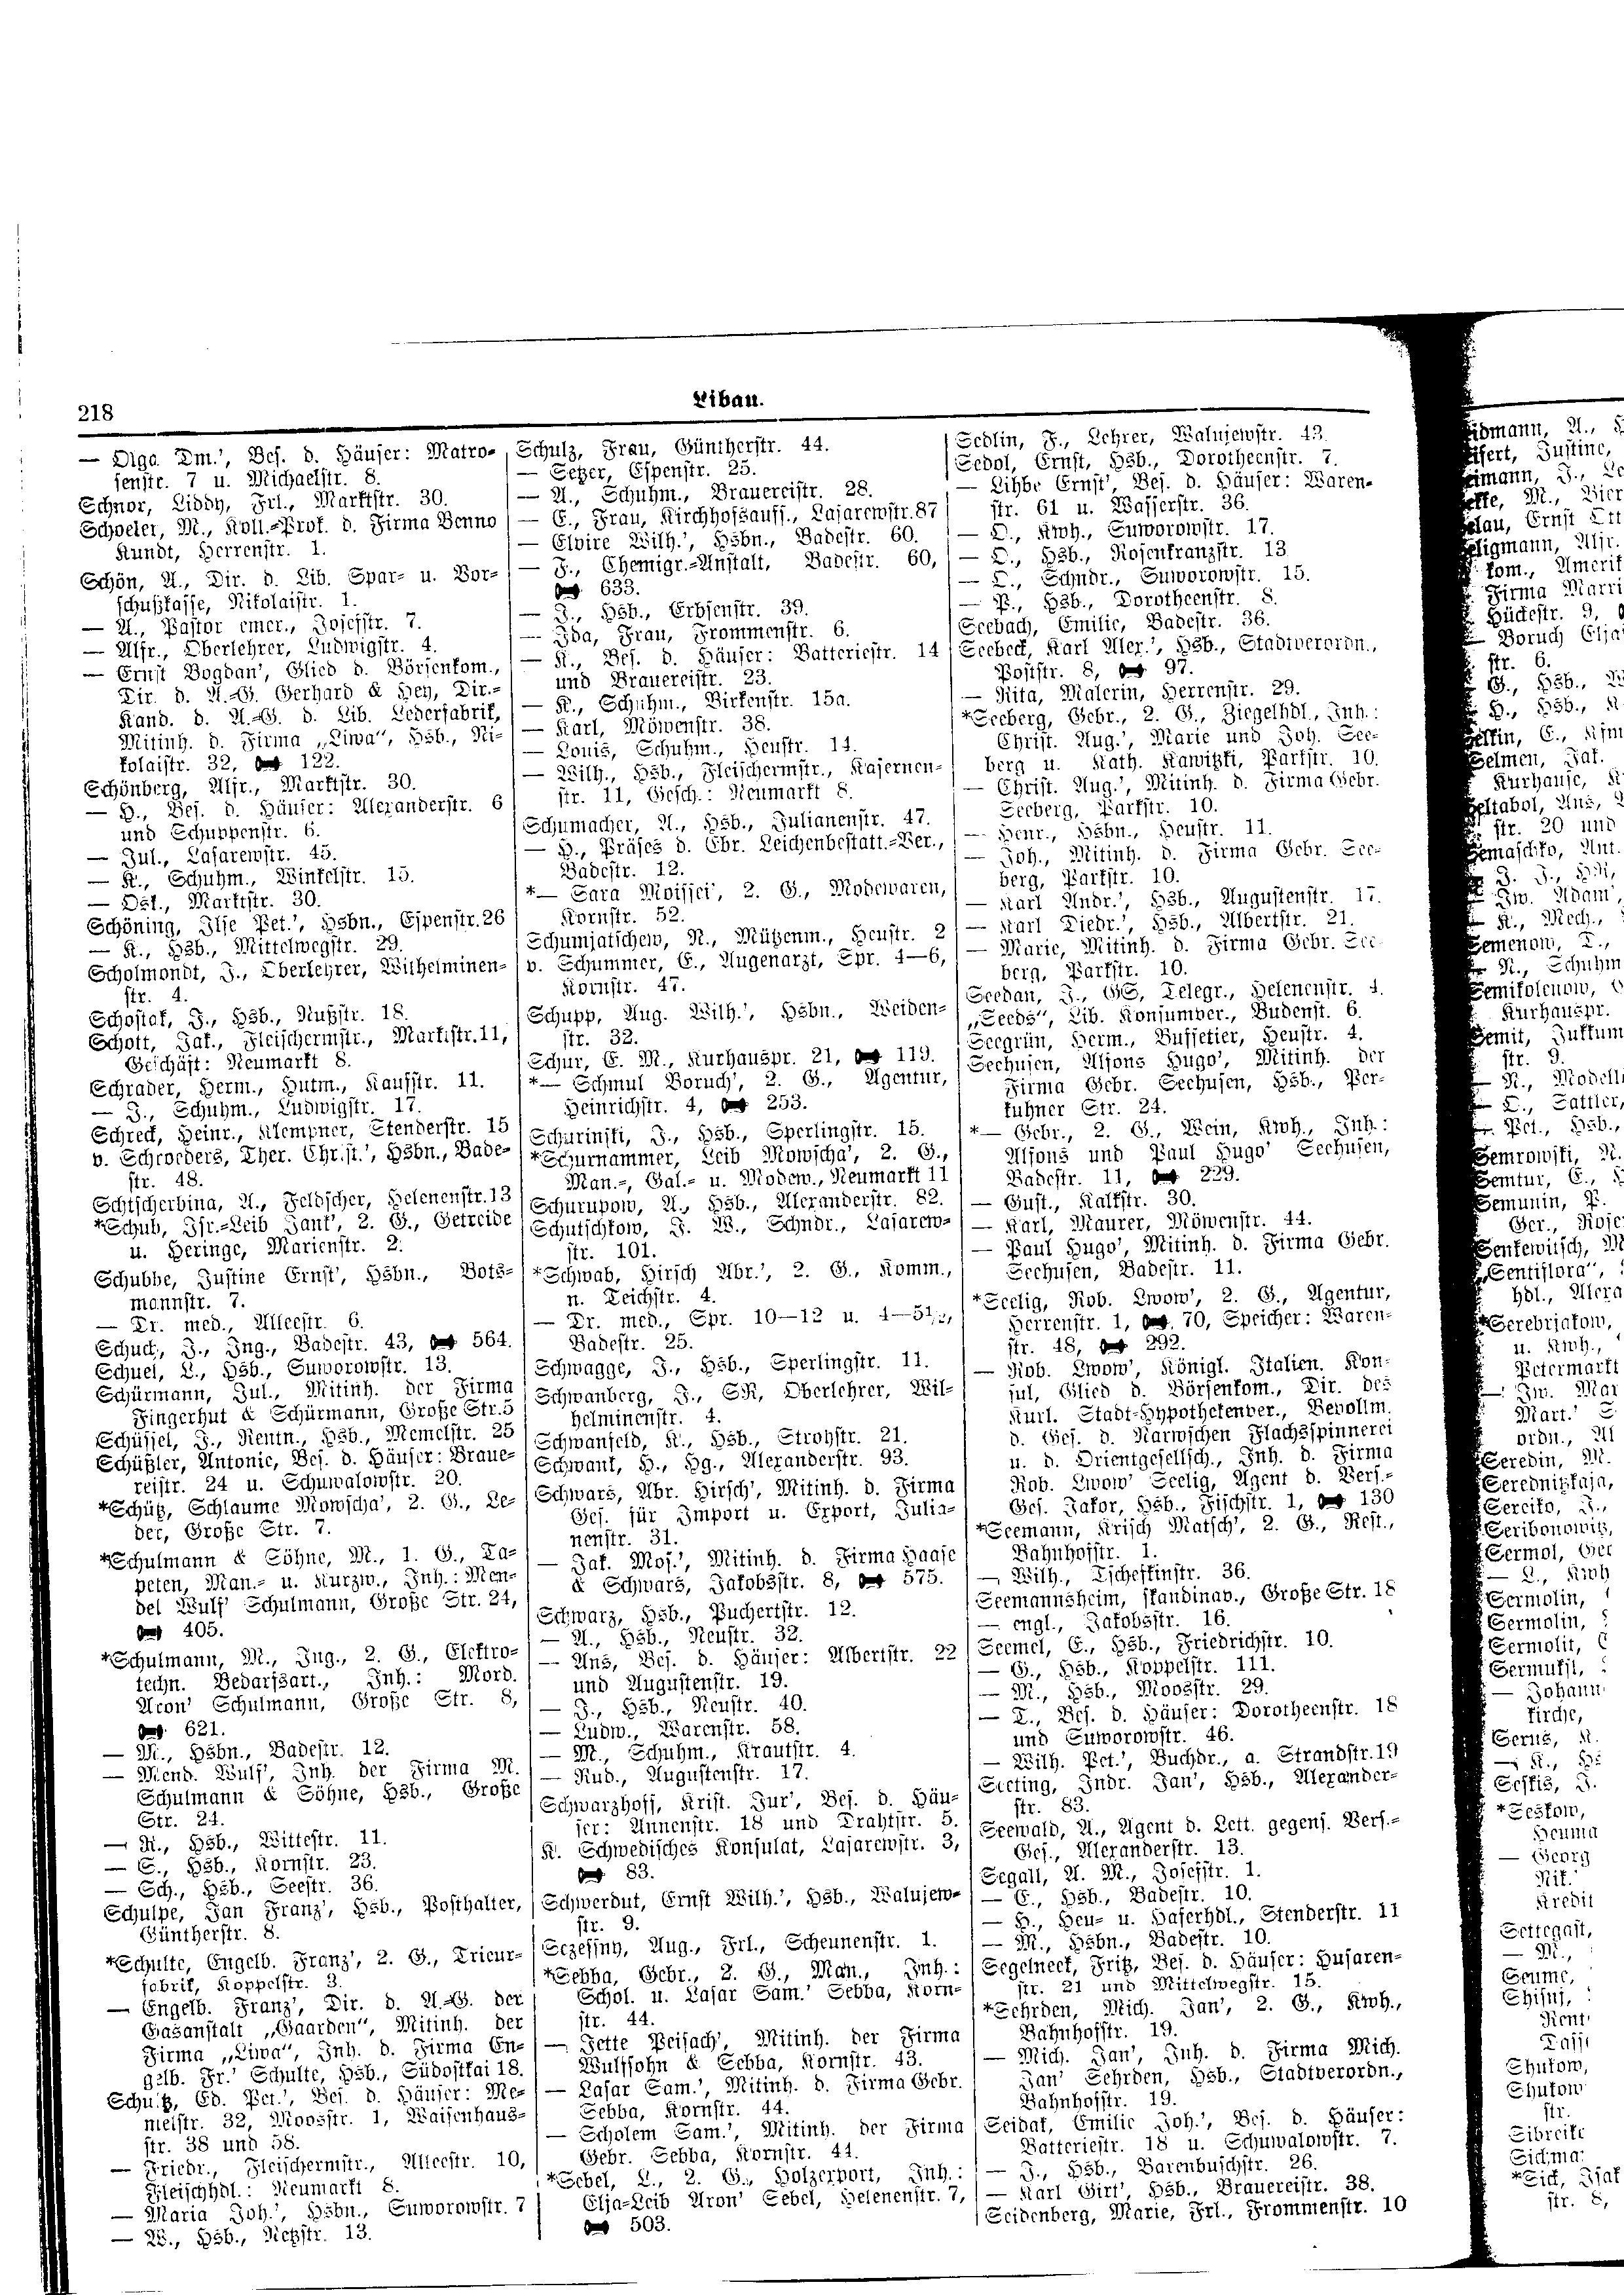 218
Libau.
— Olga Dm.', Bes. d. Häuser: Matro-
senstr. 7 u. Michaelstr. 8.
Schnor, Liddy, Frl., Marktstr. 30.
Schoeler, M., Koll.-Prok. d. Firma Benno
Kundt, Herrenstr. 1.
Schön, A., Dir. d. Lib. Spar- u. Vor-
schußkasse, Nikolaistr. 1.
— A., Pastor emer., Josefstr. 7.
— Alfr., Oberlehrer, Ludwigstr. 4.
— Ernst Bogdan', Glied d. Börsenkom.,
Dir. d. A.-G. Gerhard & Hey, Dir.-
Kand. d. A.-G. d. Lib. Lederfabrik,
Mitinh. d. Firma „Liwa“, Hsb., Ni-
kolaistr. 32, 122.
Schönberg, Alfr., Marktstr. 30.
— H., Bes. d. Häuser: Alexanderstr. 6
und Schuppenstr. 6.
— Jul., Lasarewstr. 45.
— K., Schuhm., Winkelstr. 15.
— Osk., Marktstr. 30.
Schöning, Ilse Pet.', Hsbn., Espenstr. 26
— K., Hsb., Mittelwegstr. 29.
Scholmondt, J., Oberlehrer, Wilhelminen-
str. 4.
Schostak, J., Hsb., Nußstr. 18.
Schott, Jak., Fleischermstr., Marktstr. 11,
Geschäft: Neumarkt 8.
Schrader, Herm., Hutm., Kaufstr. 11.
— J., Schuhm., Ludwigstr. 17.
Schreck, Heinr., Klempner, Stenderstr. 15
v. Schroeders, Ther. Christ.', Hsbn., Bade-
str. 48.
Schtscherbina, A., Feldscher, Helenenstr. 13
*Schub, Isr.-Leib Jank', 2. G., Getreide
u. Heringe, Marienstr. 2.
Schubbe, Justine Ernst', Hsbn., Bots-
mannstr. 7.
— Dr. med., Alleestr. 6.
Schuck, J., Ing., Badestr. 43, 564.
Schuel, L., Hsb., Suworowstr. 13.
Schürmann, Jul., Mitinh. der Firma
Fingerhut & Schürmann, Große Str. 5
Schüssel, J., Rentn., Hsb., Memelstr. 25
Schüßler, Antonie, Bes. d. Häuser: Braue-
reistr. 24 u. Schuwalowstr. 20.
*Schütz, Schlaume Mowscha', 2. G., Le-
der, Große Str. 7.
*Schulmann & Söhne, M., 1. G., Ta-
peten, Man.- u. Kurzw., Inh.: Men-
del Wulf' Schulmann, Große Str. 24,
405.
*Schulmann, M., Ing., 2. G., Elektro-
techn. Bedarfsart., Inh.: Mord.
Aron' Schulmann, Große Str. 8,
621.
— M., Hsbn., Badestr. 12.
— Mend. Wulf', Inh. der Firma M.
Schulmann & Söhne, Hsb., Große
Str. 24.
— R., Hsb., Wittestr. 11.
— S., Hsb., Kornstr. 23.
— Sch., Hsb., Seestr. 36.
Schulpe, Jan Franz', Hsb., Posthalter,
Güntherstr. 8.
*Schulte, Engelb. Franz', 2. G., Trieur-
fabrik, Koppelstr. 3.
— Engelb. Franz', Dir. d. A.-G. der
Gasanstalt „Gaarden“, Mitinh. der
Firma „Liwa“, Inh. d. Firma En-
gelb. Fr.' Schulte, Hsb., Südostkai 18.
Schultz, Ed. Pet.', Bes. d. Häuser: Me-
melstr. 32, Moosstr. 1, Waisenhaus-
str. 38 und 58.
— Friedr., Fleischermstr., Alleestr. 10,
Fleischhdl.: Neumarkt 8.
— Maria Joh.', Hsbn., Suworowstr. 7
— W., Hsb., Netzstr. 13.
Schulz, Frau, Güntherstr. 44.
— Setzer, Espenstr. 25.
— A., Schuhm., Brauereistr. 28.
— E., Frau, Kirchhofsauff., Lasarewstr. 87
— Elvire Wilh.', Hsbn., Badestr. 60.
— F., Chemigr.-Anstalt, Badestr. 60,
633.
— J., Hsb., Erbsenstr. 39.
— Ida, Frau, Frommenstr. 6.
— K., Bes. d. Häuser: Batteriestr. 14
und Brauereistr. 23.
— K., Schuhm., Birkenstr. 15a.
— Karl, Möwenstr. 38.
— Louis, Schuhm., Heustr. 14.
— Wilh., Hsb., Fleischermstr., Kasernen-
str. 11, Gesch.: Neumarkt 8.
Schumacher, A., Hsb., Julianenstr. 47.
— H., Präses d. Ebr. Leichenbestatt.-Ver.,
Badestr. 12.
*— Sara Moissei', 2. G., Modewaren,
Kornstr. 52.
Schumjatschew, N., Mützenm., Heustr. 2
v. Schummer, E., Augenarzt, Spr. 4—6,
Kornstr. 47.
Schupp, Aug. Wilh.', Hsbn., Weiden-
str. 32.
Schur, E. M., Kurhauspr. 21, 119.
*— Schmul Boruch', 2. G., Agentur,
Heinrichstr. 4, 253.
Schurinski, J., Hsb., Sperlingstr. 15.
*Schurnammer, Leib Mowscha', 2. G.,
Man.-, Gal.- u. Modew., Neumarkt 11
Schurupow, A., Hsb., Alexanderstr. 82.
Schutschkow, J. W., Schndr., Lasarew-
str. 101.
*Schwab, Hirsch Abr.', 2. G., Komm.,
n. Teichstr. 4.
— Dr. med., Spr. 10—12 u. 4—5½,
Badestr. 25.
Schwagge, J., Hsb., Sperlingstr. 11.
Schwanberg, J., SR, Oberlehrer, Wil-
helminenstr. 4.
Schwanfeld, K., Hsb., Strohstr. 21.
Schwank, H., Hg., Alexanderstr. 93.
Schwars, Abr. Hirsch', Mitinh. d. Firma
Ges. für Import u. Export, Julia-
nenstr. 31.
— Jak. Mos.', Mitinh. d. Firma Haase
& Schwars, Jakobsstr. 8, 575.
Schwarz, Hsb., Puchertstr. 12.
— A., Hsb., Neustr. 32.
— Ans, Bes. d. Häuser: Albertstr. 22
und Augustenstr. 19.
— J., Hsb., Neustr. 40.
— Ludw., Warenstr. 58.
— M., Schuhm., Krautstr. 4.
— Rud., Augustenstr. 17.
Schwarzhoff, Krist. Jur', Bes. d. Häu-
ser: Annenstr. 18 und Drahtstr. 5.
K. Schwedisches Konsulat, Lasarewstr. 3,
83.
Schwerdut, Ernst Wilh.', Hsb., Walujew-
str. 9.
Sczessny, Aug., Frl., Scheunenstr. 1.
*Sebba, Gebr., 2. G., Man., Inh.:
Schol. u. Lasar Sam.' Sebba, Korn-
str. 44.
— Jette Peisach', Mitinh. der Firma
Wulfsohn & Sebba, Kornstr. 43.
— Lasar Sam.', Mitinh. d. Firma Gebr.
Sebba, Kornstr. 44.
— Scholem Sam.', Mitinh. der Firma
Gebr. Sebba, Kornstr. 44.
*Sebel, L., 2. G., Holzexport, Inh.:
Elja-Leib Aron' Sebel, Helenenstr. 7,
503.
Sedlin, F., Lehrer, Walujewstr. 43.
Sedol, Ernst, Hsb., Dorotheenstr. 7.
— Lihbe Ernst', Bes. d. Häuser: Waren-
str. 61 u. Wasserstr. 36.
— O., Kwh., Suworowstr. 17.
— O., Hsb., Rosenkranzstr. 13
— O., Schndr., Suworowstr. 15.
— P., Hsb., Dorotheenstr. 8.
Seebach, Emilie, Badestr. 36.
Seebeck, Karl Alex.', Hsb., Stadtverordn.,
Poststr. 8, 97.
— Rita, Malerin, Herrenstr. 29.
*Seeberg, Gebr., 2. G., Ziegelhdl., Inh.:
Christ. Aug.', Marie und Joh. See-
berg u. Kath. Kawitzki, Parkstr. 10.
— Christ. Aug.', Mitinh. d. Firma Gebr.
Seeberg, Parkstr. 10.
— Henr., Hsbn., Heustr. 11.
— Joh., Mitinh. d. Firma Gebr. See-
berg, Parkstr. 10.
— Karl Andr.', Hsb., Augustenstr. 17.
— Karl Diedr.', Hsb., Albertstr. 21.
— Marie, Mitinh. d. Firma Gebr. See-
berg, Parkstr. 10.
Seedan, J., GS, Telegr., Helenenstr. 4.
„Seeds“, Lib. Konsumver., Budenst. 6.
Seegrün, Herm., Buffetier, Heustr. 4.
Seehusen, Alfons Hugo', Mitinh. der
Firma Gebr. Seehusen, Hsb., Per-
kuhner Str. 24.
*— Gebr., 2. G., Wein, Kwh., Inh.:
Alfons und Paul Hugo' Seehusen,
Badestr. 11, 229.
— Gust., Kalkstr. 30.
— Karl, Maurer, Möwenstr. 44.
— Paul Hugo', Mitinh. d. Firma Gebr.
Seehusen, Badestr. 11.
*Seelig, Rob. Lwow', 2. G., Agentur,
Herrenstr. 1, 70, Speicher: Waren-
str. 48, 292.
— Rob. Lwow', Königl. Italien. Kon-
sul, Glied d. Börsenkom., Dir. des
Kurl. Stadt-Hypothekenver., Bevollm.
d. Ges. d. Narwschen Flachsspinnerei
u. d. Orientgesellsch., Inh. d. Firma
Rob. Lwow' Seelig, Agent d. Vers.-
Ges. Jakor, Hsb., Fischstr. 1, 130
*Seemann, Krisch Matsch', 2. G., Rest.,
Bahnhofstr. 1.
— Wilh., Tscheskinstr. 36.
Seemannsheim, skandinav., Große Str. 18
— engl., Jakobsstr. 16.
Seemel, E., Hsb., Friedrichstr. 10.
— G., Hsb., Koppelstr. 111.
— M., Hsb., Moosstr. 29.
— T., Bes. d. Häuser: Dorotheenstr. 18
und Suworowstr. 46.
— Wilh. Pet.', Buchdr., a. Strandstr. 19
Seeting, Indr. Jan', Hsb., Alexander-
str. 83.
Seewald, A., Agent d. Lett. gegens. Vers.-
Ges., Alexanderstr. 13.
Segall, A. M., Josefstr. 1.
— E., Hsb., Badestr. 10.
— H., Heu- u. Haferhdl., Stenderstr. 11
— M., Hsbn., Badestr. 10.
Segelneck, Fritz, Bes. d. Häuser: Husaren-
str. 21 und Mittelwegstr. 15.
*Sehrden, Mich. Jan', 2. G., Kwh.,
Bahnhofstr. 19.
— Mich. Jan', Inh. d. Firma Mich.
Jan' Sehrden, Hsb., Stadtverordn.,
Bahnhofstr. 19.
Seidak, Emilie Joh.', Bes. d. Häuser:
Batteriestr. 18 u. Schuwalowstr. 7.
— J., Hsb., Barenbuschstr. 26.
— Karl Girt', Hsb., Brauereistr. 38.
Seidenberg, Marie, Frl., Frommenstr. 10